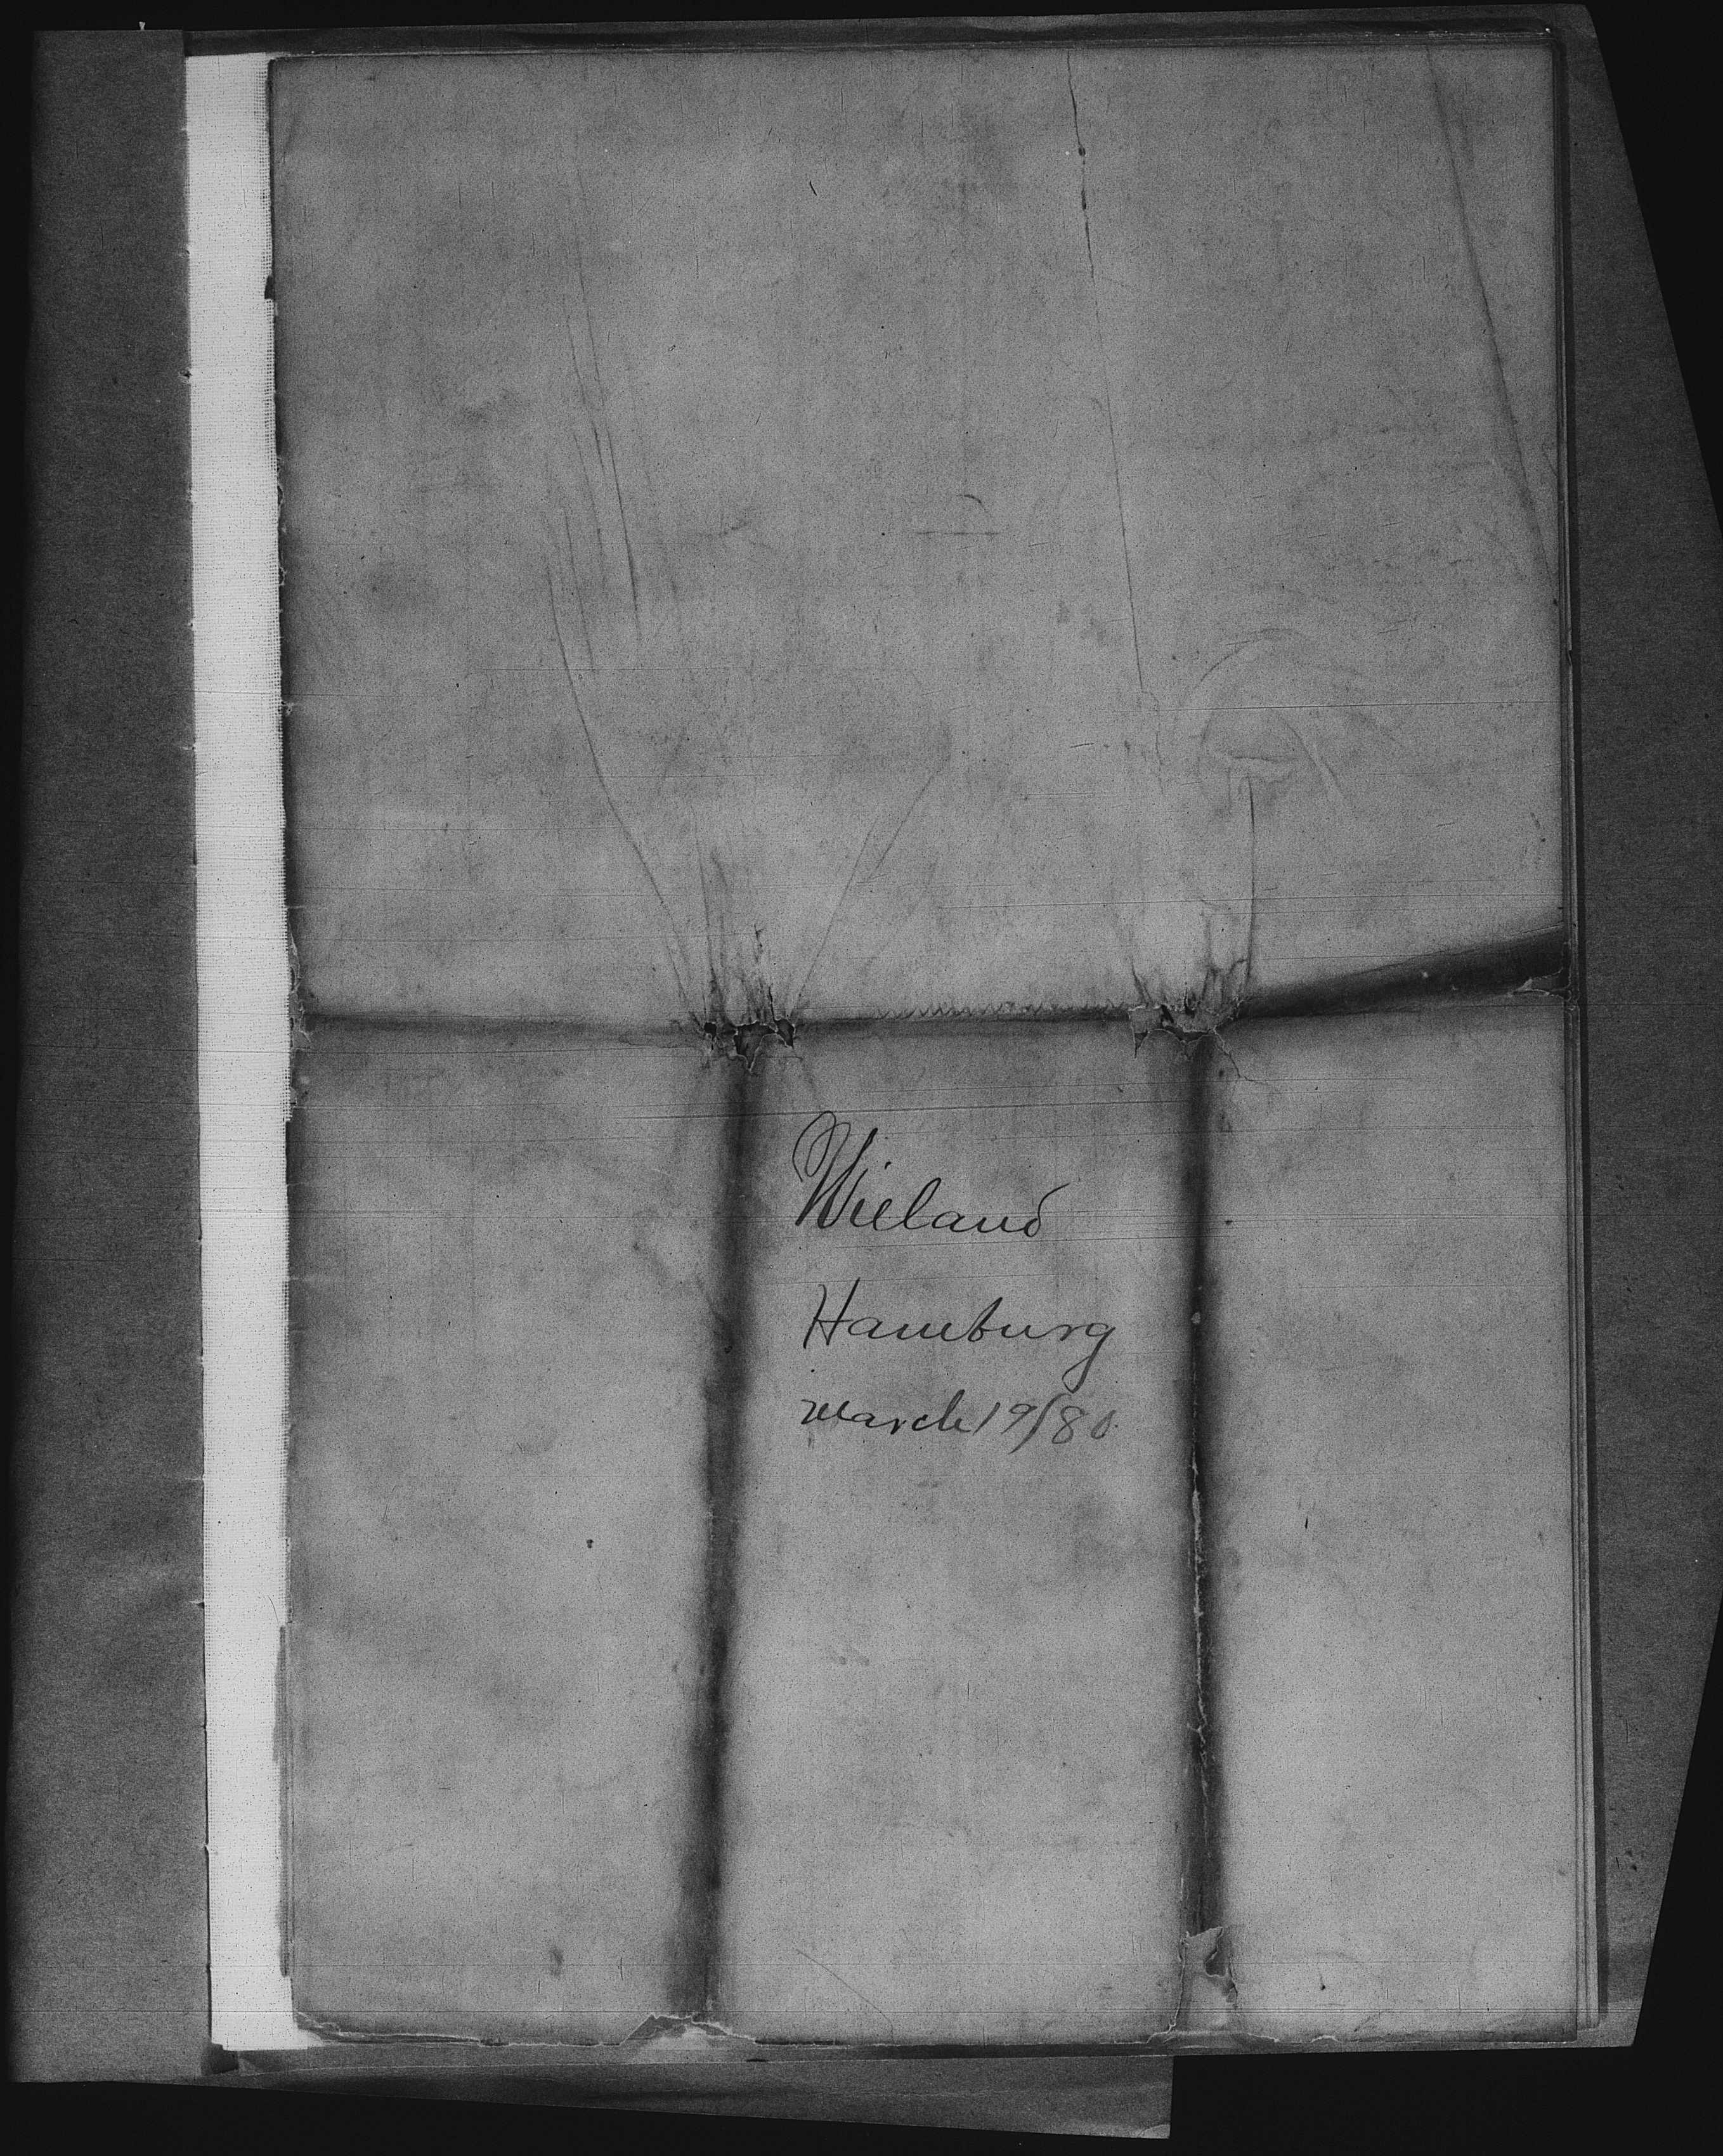 Wieland
Hamburg
March 19/80